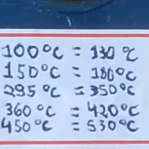 100°C = 130 °C
150°C = 180°C
295°C = 350°C
360°C = 420°C
450°C = 530°C